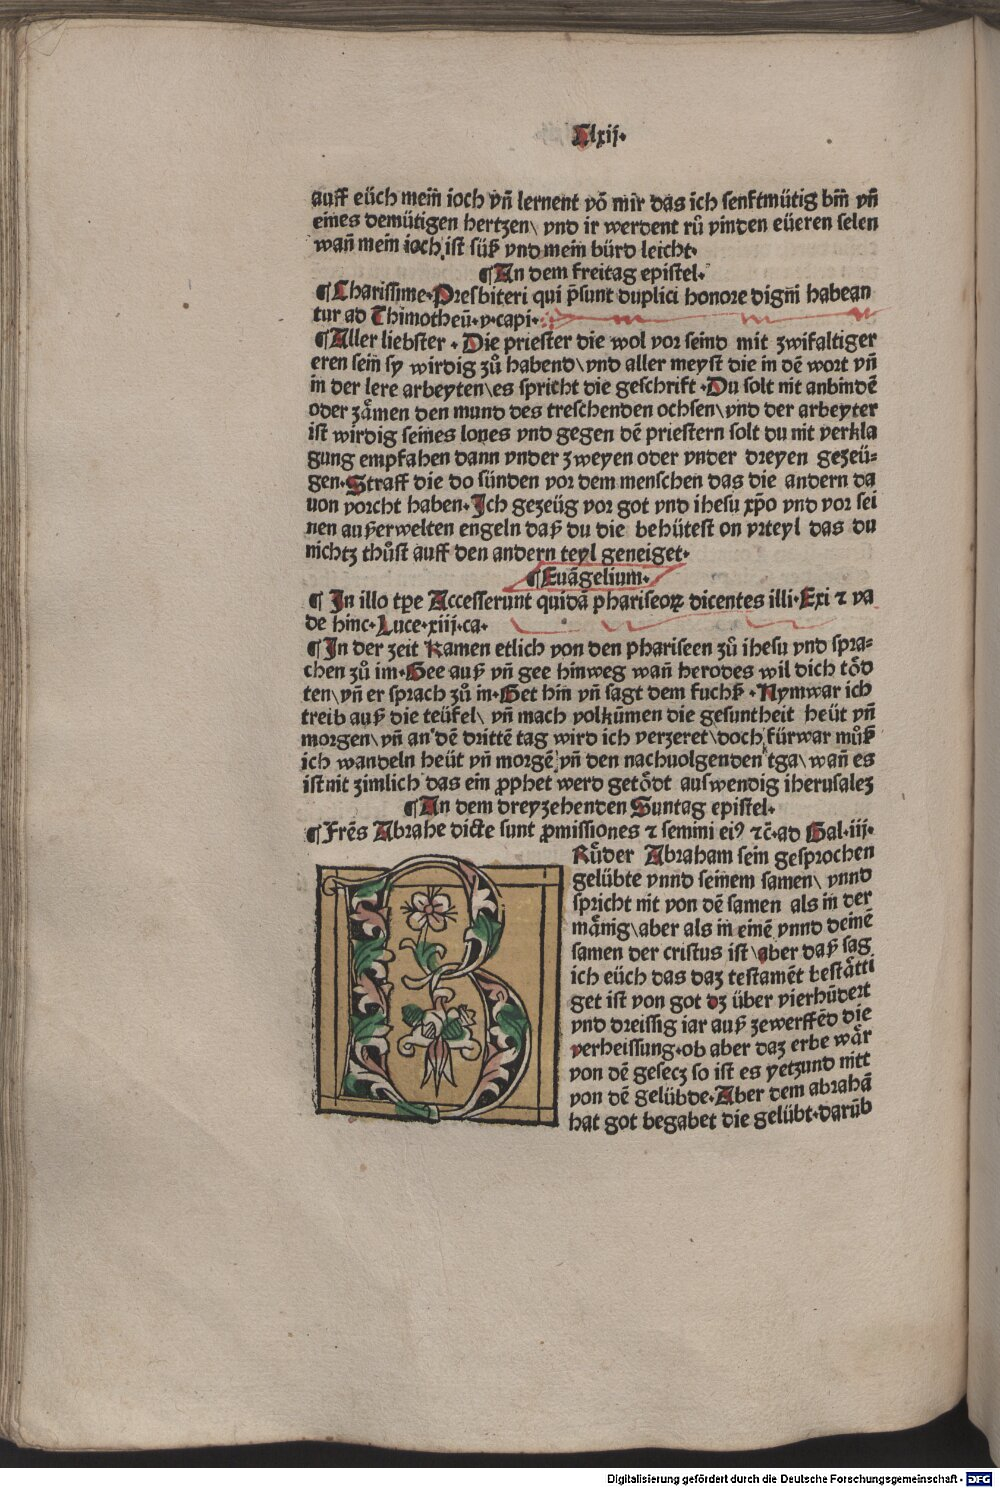 Clxij·
auff eüch mein̄ ioch vn̄ lernent vō mir das ich senftmütig bin̄ vn̄
eines demütigen hertzen\ vnd ir werdent rů vinden eüeren selen
wan̄ mein ioch ist süß vnd mein bürd leicht·
¶An dem freitag epistel·
¶Charissime·Presbiteri qui p̄sunt duplici honore digni habean
tur ad Thimotheū·v·capi·
¶Aller liebster·Die priester die wol vor seind mit zwifaltiger
eren sein sy wirdig zů habend\vnd aller meyst die in dē wort vn̄
in der lere arbeyten\es spricht die geschrift·Du solt nit anbindē
oder zämen den mund des treschenden ochsen\vnd der arbeyter
ist wirdig seines lones vnd gegen dē priestern solt du nit verkla
gung empfahen dann vnder zweyen oder vnder dreyen gezeü-
gen·Straff die do sünden vor dem menschen das die andern da
uon vorcht haben·Ich gezeüg vor got vnd ihesu xp̄o vnd vor sei
nen außerwelten engeln daß du die behütest on vrteyl das du
nichtz thůst auff den andern teyl geneiget·
¶Euāgelium·
¶In illo tpe Accesserunt quidā phariseoꝝ dicentes illi·Exi ⁊ va
de hinc·Luce·xiij·ca·
¶In der zeit kamen etlich von den phariseen zů ihesu vnd spra-
chen zů im·Gee auß vn̄ gee hinweg wan̄ herodes wil dich tȫd
ten\vn̄ er sprach zů in·Get hin vn̄ sagt dem fuchß·Nymwar ich
treib auß die teüfel\ vn̄ mach volkūmen die gesuntheit heüt vn̄
morgen\vn̄ an dē drittē tag wird ich verzeret\doch fürwar můß
ich wandeln heüt vn̄ morgē vn̄ den nachuolgenden tga\wan̄ es
ist nit zimlich das ein ꝓphet werd getödt auswendig iherusalez
¶An dem dreyzehenden Suntag epistel·
¶Frēs Abrahe dicte sunt ꝓmissiones ⁊ semini eiꝰ ⁊c̄·ad Gal·iij·
BRüder Abraham sein gesprochen
gelübte vnnd seinem samen\ vnnd
spricht nit von dē samen als in der
mänig\aber als in einē vnnd deinē
samen der cristus ist\aber daß sag
ich eüch das daz testamēt bestätti
get ist von got dz über vierhūdert
vnd dreissig iar auß zewerffēd die
verheissung·ob aber daz erbe wär
von dē gesecz so ist es yetzund nitt
von dē gelübde·Aber dem abrahā
hat got begabet die gelübt·darūb
Digitalisierung gefördert durch die Deutsche Forschungsgemeinschaft - DFG